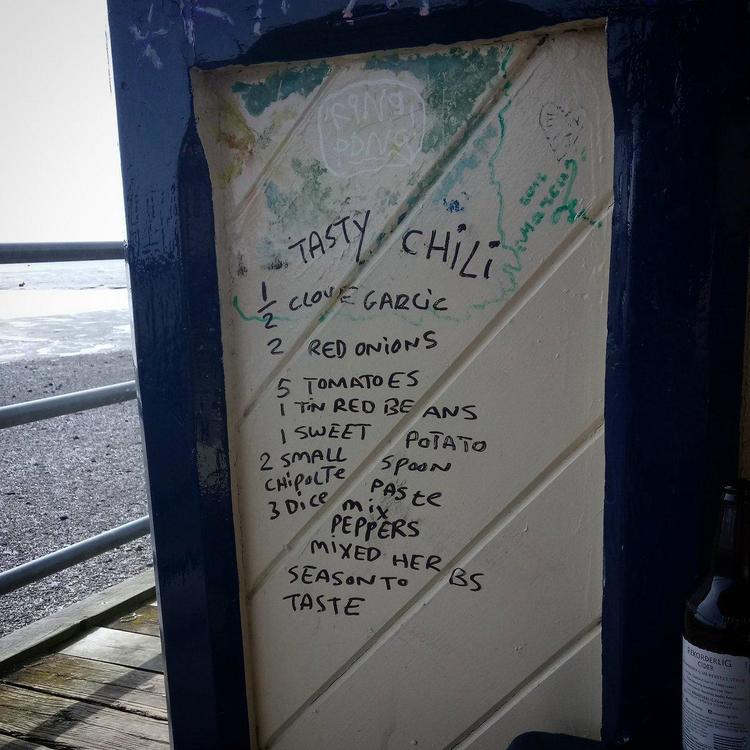 TASTY CHILI
1/2 CLOVE GARLIC
2 RED ONIONS
5 TOMATOES
1 TIN RED BEANS
1 SWEET POTATO
2 SMALL SPOON
CHIPOLTE PASTE
3 DICE MIX
PEPPERS
MIXED HERBS
SEASON TO
TASTE
REKORDERLIG
CIDER